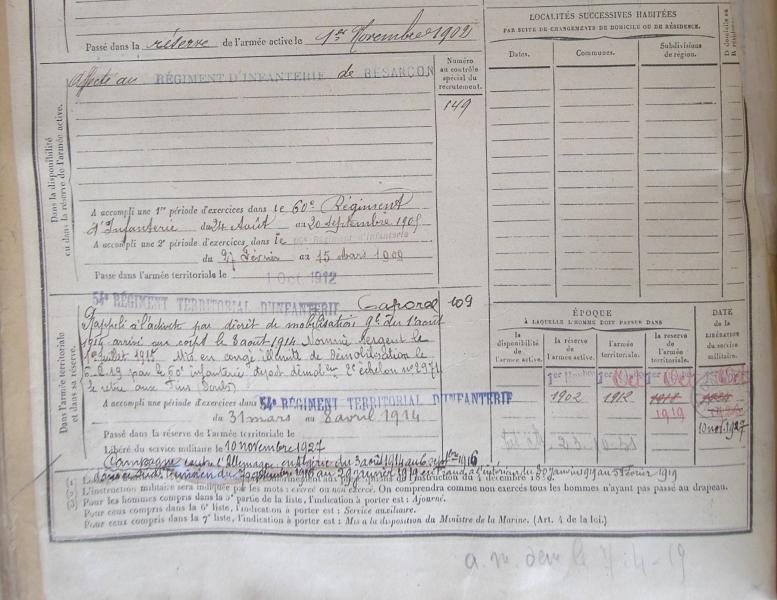 Passé dans la réserve de l'armée active le 1er Novembre 1902
Dans la disponibilité
ou dans la réserve de l'armée active.
Affecté au RÉGIMENT D'INFANTERIE de BESANÇON
Numéro
au contrôle
spécial du
recrutement.
149
A accompli une 1re période d'exercices dans le 60e Régiment
d'Infanterie du 24 Août au 20 septembre 1905
A accompli une 2e période d'exercices dans le
du 27 Février au 15 mars 1909
Passé dans l'armée territoriale le 1 Oct 1912
LOCALITÉS SUCCESSIVES HABITÉES
PAR SUITE DE CHANGEMENTS DE DOMICILE OU DE RÉSIDENCE.
Dates.
Communes.
Subdivisions
de région.
Dans l'armée territoriale
et dans sa réserve.
54e RÉGIMENT TERRITORIAL D'INFANTERIE
Caporal 109
Rappelé à l'activité par décret de mobilisation gle du 1er août
1914 arrivé au corps le 3 août 1914 Nommé sergent le
1er juillet 1915 Mis en congé illimité de démobilisation le
par le 60e infanterie dépôt démobr 2e échelon no 2971
se retire aux Fins Doubs
A accompli une période d'exercices dans 54e RÉGIMENT TERRITORIAL D'INFANTERIE
du 31 mars au 8 avril 1914
Passé dans la réserve de l'armée territoriale le
Libéré du service militaire le 10 novembre 1927
Campagne contre l'Allemagne
ÉPOQUE
À LAQUELLE L'HOMME DOIT PASSER DANS
la
disponibilité
de
l'armée active.
la réserve
de
l'armée active.
l'armée
territoriale.
la réserve
de
l'armée
territoriale.
DATE
de la
LIBÉRATION
du service
militaire.
1902
1912
1918
1919
10 nov. 1927
L'instruction militaire sera indiquée par les mots : exercé ou non exercé. On comprendra comme non exercés tous les hommes n'ayant pas passé au drapeau.
Pour les hommes compris dans la 5e partie de la liste, l'indication à porter est : Ajourné.
Pour ceux compris dans la 6e liste, l'indication à porter est : Service auxiliaire.
Pour ceux compris dans la 7e liste, l'indication à porter est : Mis à la disposition du Ministre de la Marine. (Art. 4 de la loi.)